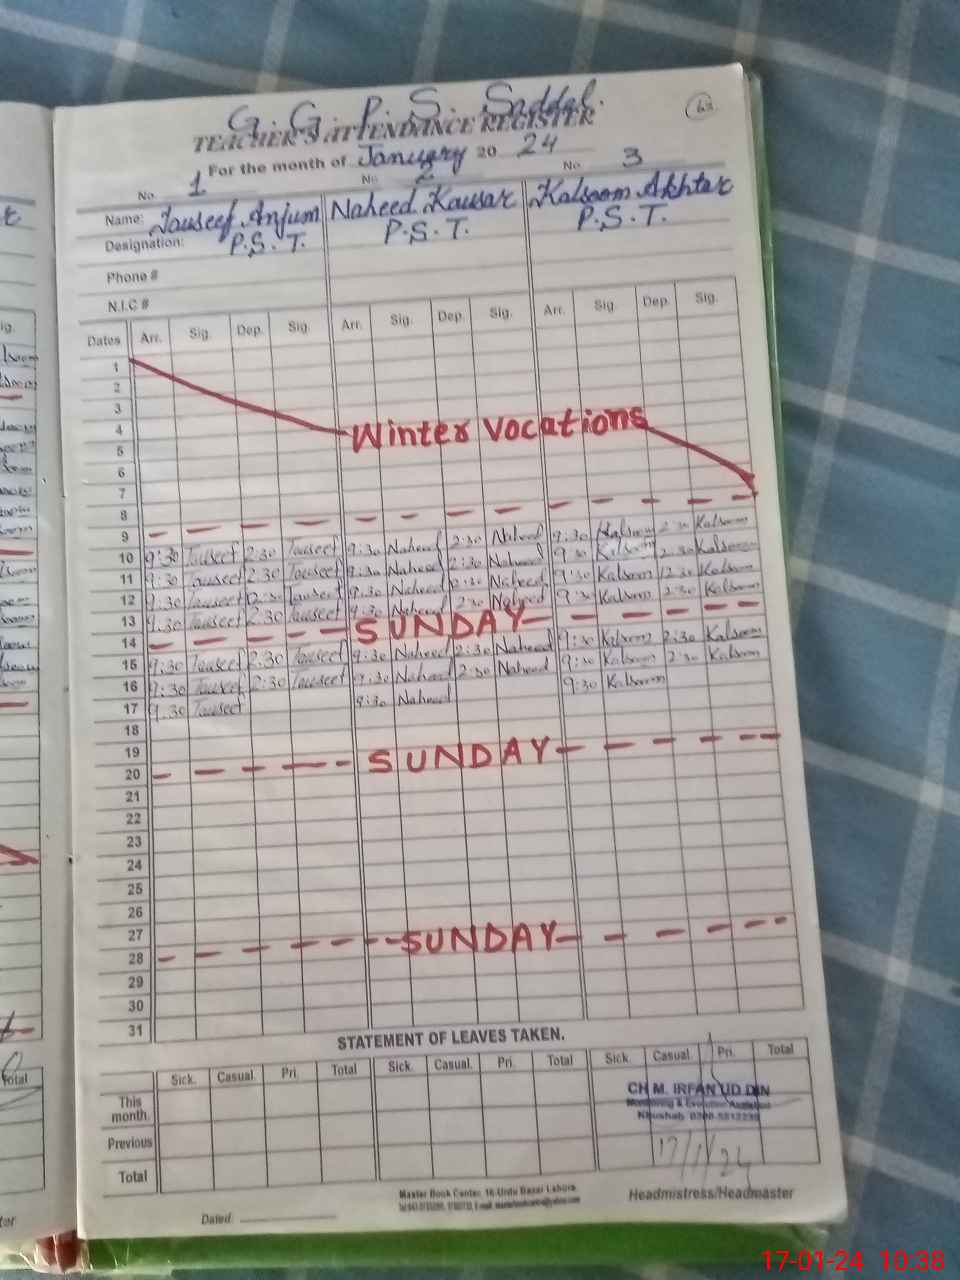 G. G. P. S. Saddal.
TEACHER'S ATTENDANCE REGISTER
For the month of January 2024
No 1 No 2 No 3
Name: Tauseef Anjum Naheed Kausar Kalsoom Akhtar
Designation: P.S.T. P.S.T. P.S.T.
Phone #
N.I.C #
Dates Arr. Sig. Dep. Sig. Arr. Sig. Dep. Sig. Arr. Sig. Dep. Sig.
1
2
3
4 Winter Vocations
5
6
7
8
9
10 9:30 Tauseef 2:30 Tauseef 9:30 Naheed 2:30 Naheed 9:30 Kalsoom 2:30 Kalsoom
11 9:30 Tauseef 2:30 Tauseef 9:30 Naheed 2:30 Naheed 9:30 Kalsoom 2:30 Kalsoom
12 9:30 Tauseef 2:30 Tauseef 9:30 Naheed 2:30 Naheed 9:30 Kalsoom 2:30 Kalsoom
13 9:30 Tauseef 2:30 Tauseef 9:30 Naheed 2:30 Naheed 9:30 Kalsoom 2:30 Kalsoom
14 SUNDAY
15 9:30 Tauseef 2:30 Tauseef 9:30 Naheed 2:30 Naheed 9:30 Kalsoom 2:30 Kalsoom
16 9:30 Tauseef 2:30 Tauseef 9:30 Naheed 2:30 Naheed 9:30 Kalsoom 2:30 Kalsoom
17 9:30 Tauseef 9:30 Naheed 9:30 Kalsoom
18
19
20 SUNDAY
21
22
23
24
25
26
27
28 SUNDAY
29
30
31
STATEMENT OF LEAVES TAKEN.
Sick. Casual. Pri. Total Sick. Casual. Pri. Total Sick. Casual. Pri. Total
This month.
CH M. IRFAN UD DIN
Monitoring & Evaluation Assistant
Khushab
Previous
17/1/24
Total
Master Book Center, 16-Urdu Bazar Lahore.
Headmistress/Headmaster
Dated:
17-01-24 10:38